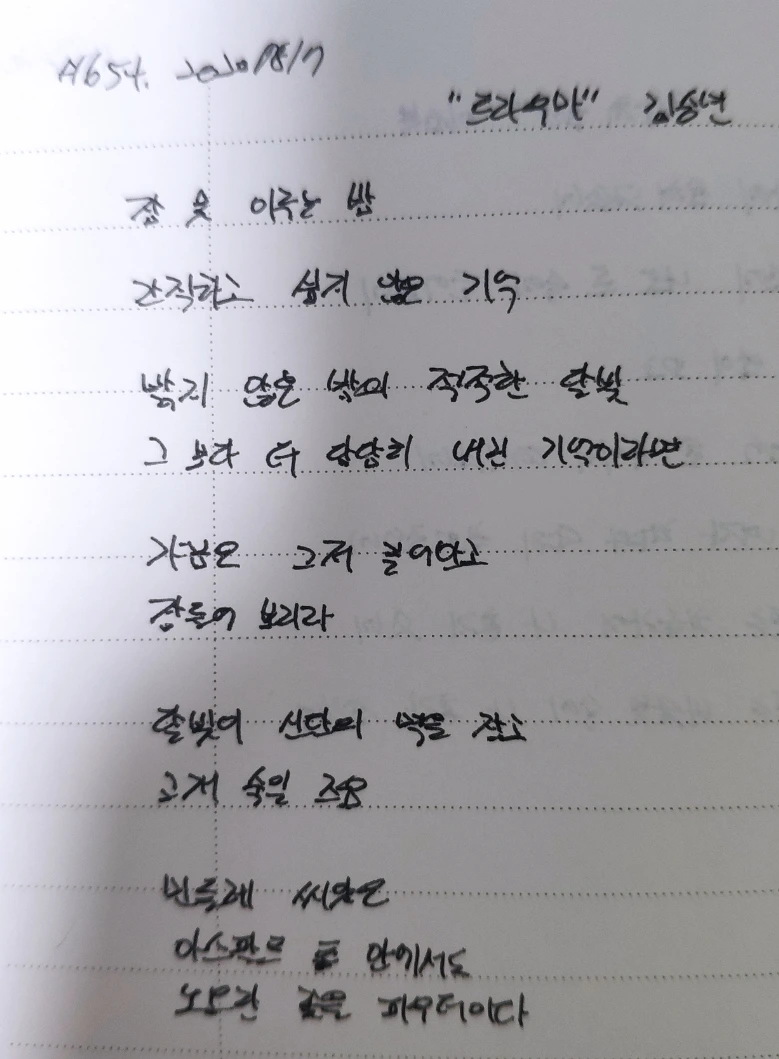 #654. 2020/08/17
"트라우마" 김승년
잠 못 이루는 밤
간직하고 싶지 않은 기억
밝지 않은 밤의 적적한 달빛
그 보다 더 담담히 내린 기억이라면
가끔은 그저 끌어안고
잠들어 보리라
달빛이 신단의 벽을 잡고
고개 숙일 즈음
민들레 씨앗은
아스팔트 틈 안에서도
노오란 꽃을 피우더이다